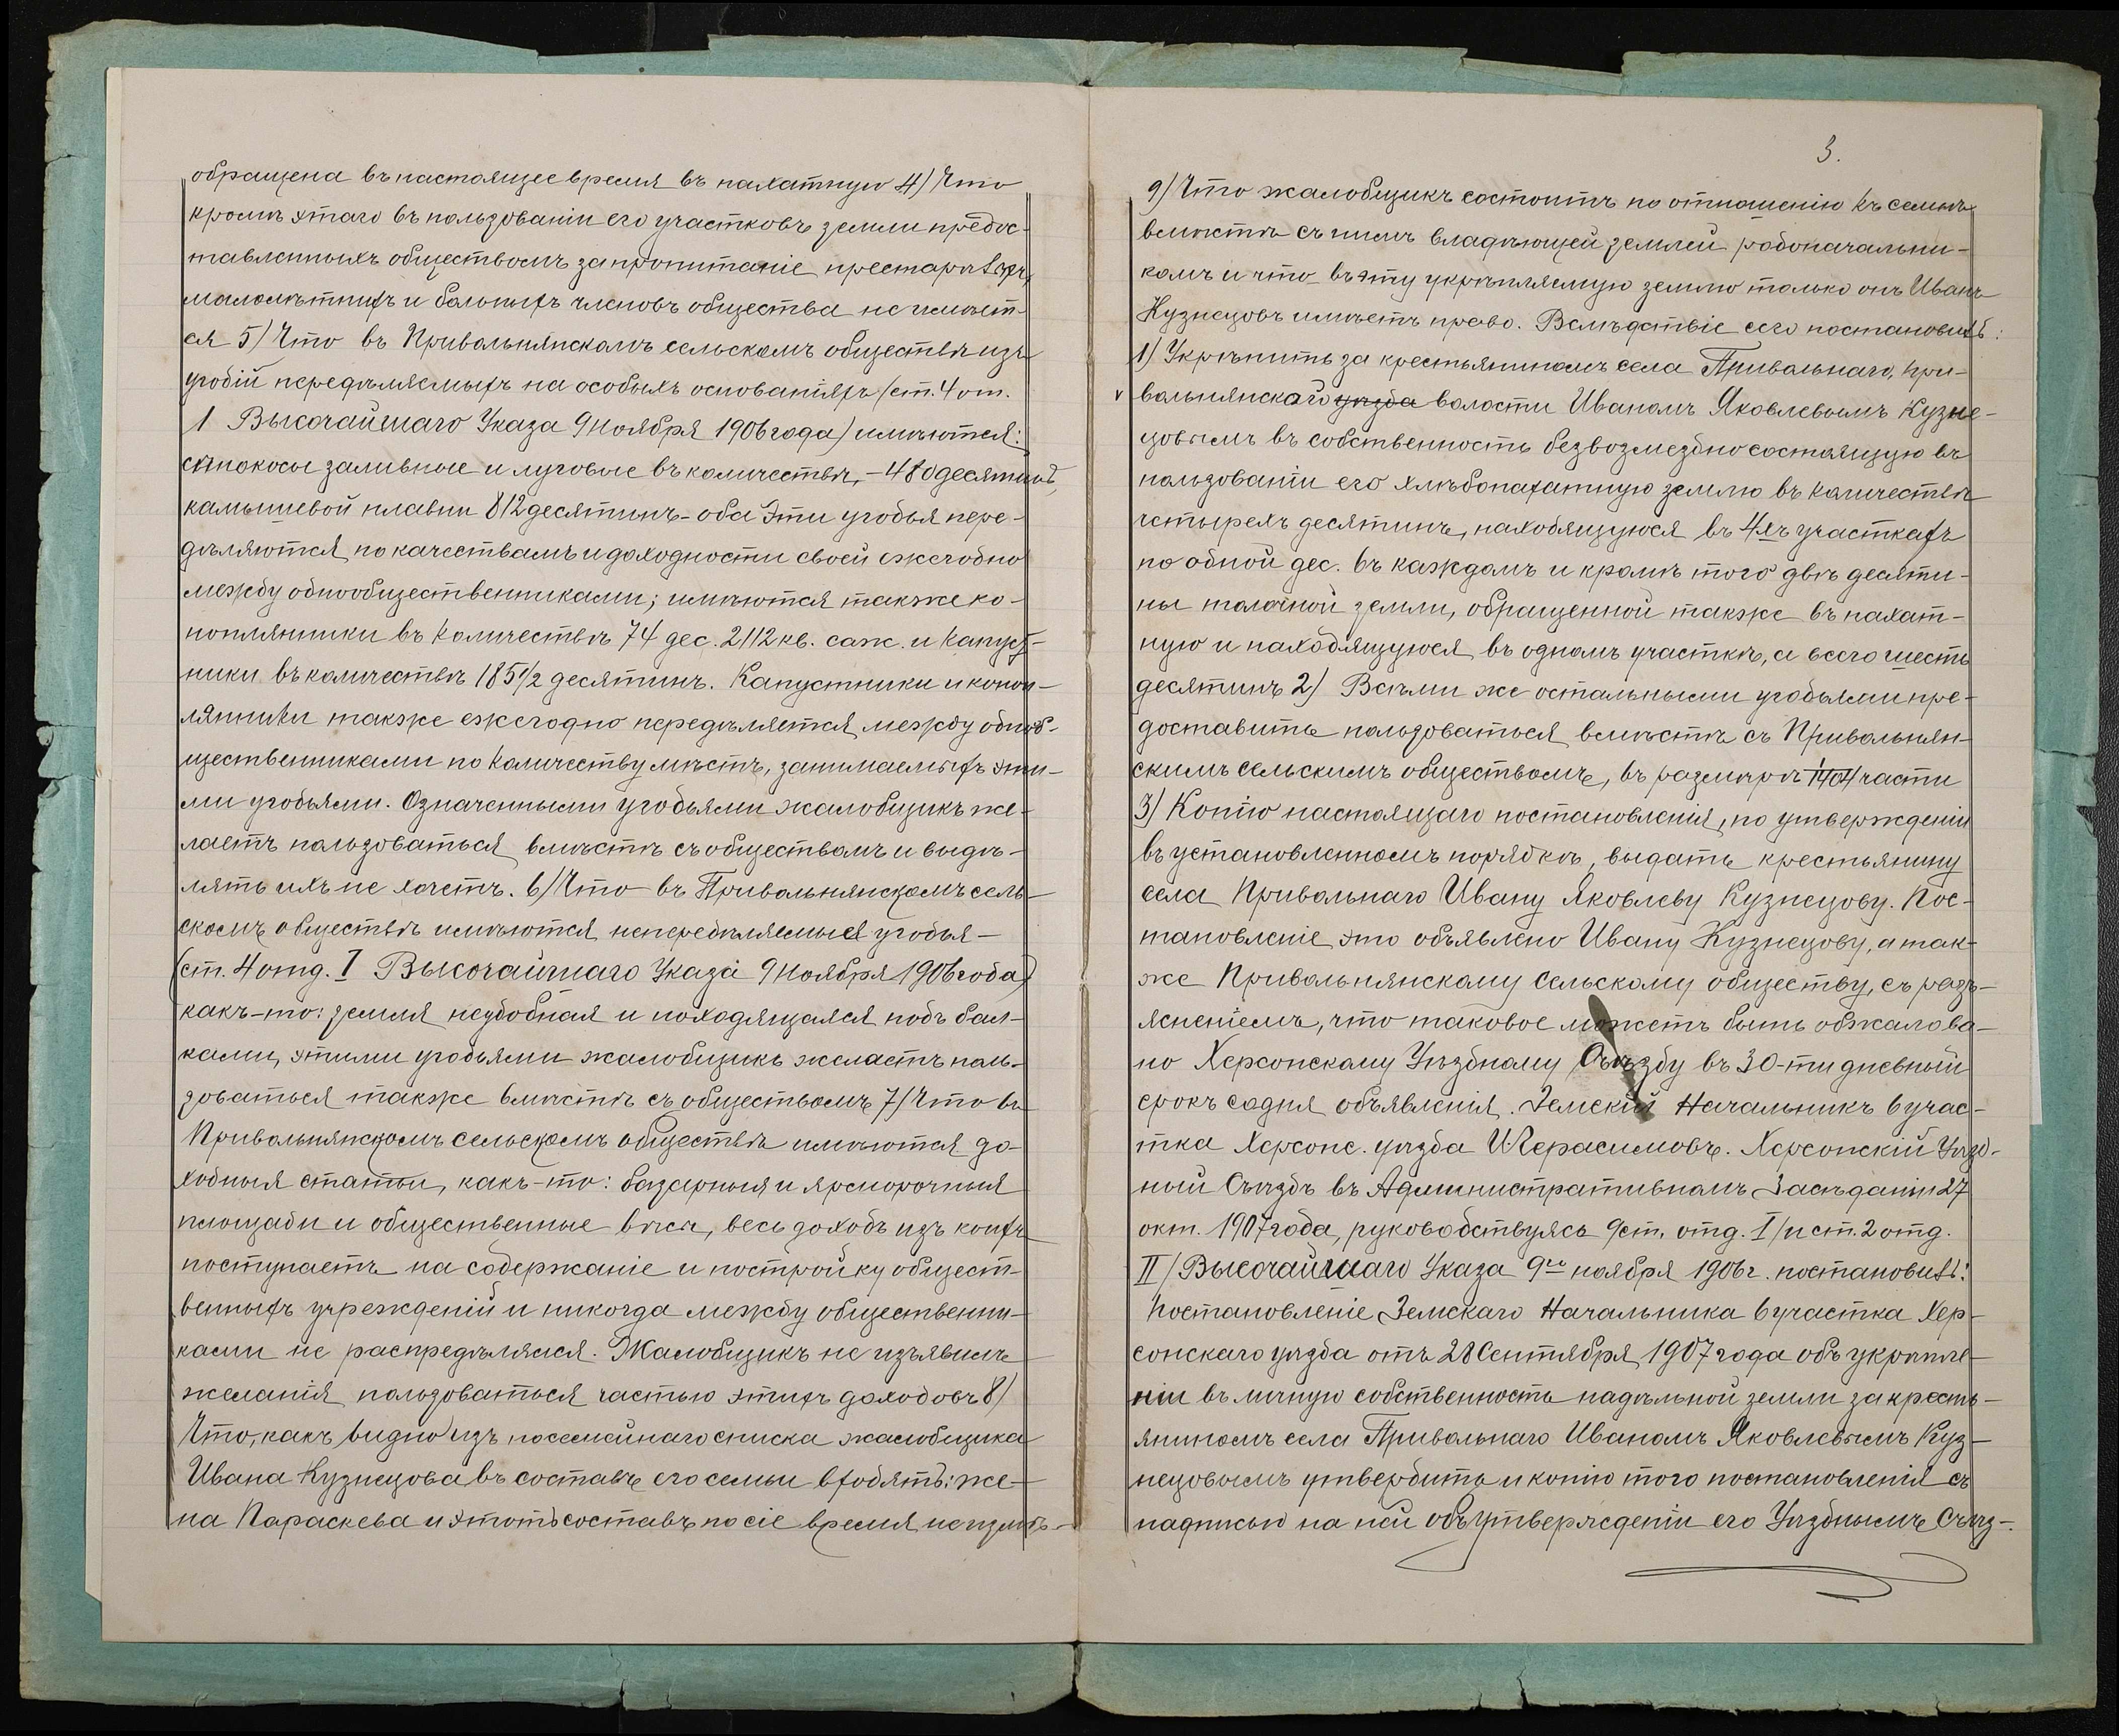 обращена въ настоящее время въ пахатную 4) Что
кромѣ этаго въ пользованіи его участковъ земли предос-
тавленныхъ обществомъ за пропитаніе престарѣлыхъ,
малолѣтнихъ и больныхъ членовъ общества не имѣет-
ся 5) Что въ Привольнянскомъ сельскомъ обществѣ изъ
угодій передѣляемыхъ на особыхъ основаніяхъ (ст. 4 от.
1 Высочайшаго Указа 9 Ноября 1906 года) имѣются:
сѣнокосы заливные и луговые въ количествѣ, - 480 десятинъ,
камышевой плавни 812 десятинъ - оба эти угодья пере-
дѣляются по качествамъ и доходности своей ежегодно
между однообщественниками; имѣются также ко-
нопляники въ количествѣ 74 дес. 2112 кв. саж. и капуст-
ники въ количествѣ 185 1/2 десятинъ. Капустники и коноп-
ляники также ежегодно передѣляется между однооб-
щественниками по количеству мѣстъ, занимаемыхъ эти-
ми угодьями. Означенными угодьями жалобщикъ же-
лаетъ пользоваться вмѣстѣ съ обществомъ и выдѣ-
лять ихъ не хочетъ. 6) Что въ Привольнянскомъ сель-
скомъ обществѣ имѣются непередѣляемыея угодья -
(ст. 4 отд. I Высочайшаго Указа 9 Ноября 1906 года)
какъ-то: земля неудобная и находящаяся подъ бал-
ками, этими угодьями жалобщикъ желаетъ поль-
зоваться также вмѣстѣ съ обществомъ 7) Что въ
Привольнянскомъ сельскомъ обществѣ имѣются до-
ходныя статьи, какъ-то: базарныя и ярморочныя
площади и общественные вѣсы, весь доходъ изъ коихъ
поступаетъ на содержаніе и постройку общест-
венныхъ учрежденій и никогда между общественни-
ками не распредѣлялся. Жалобщикъ не изъявилъ
желанія пользоваться частью этихъ доходовъ 8)
Что, какъ видно изъ посемейнаго списка жалобщика
Ивана Кузнецова въ составъ его семьи входятъ: же-
на Параскева и этотъ составъ по сіе время не измѣ-
3.
9) Что жалобщикъ состоитъ по отношенію къ семьѣ
вмѣстѣ съ нимъ владѣющей землей родоначальни-
комъ и что въ эту укрѣпляемую землю только онъ Иванъ
Кузнецовъ имѣетъ право. Вслѣдствіе сего постановилъ:
1) Укрѣпить за крестьяниномъ села Привольнаго, При-
v вольнянскаго уѣзда волости Иваномъ Яковлевымъ Кузне-
цовымъ въ собственность безвозмездно состоящую въ
пользованіи его хлѣбопахатную землю въ количествѣ
четырехъ десятинъ, находящуюся въ 4хъ участкахъ
по одной дес. въ каждомъ и кромѣ того двѣ десяти-
ны толочной земли, обращенной также въ пахат-
ную и находящуюся въ одномъ участкѣ, а всего шесть
десятинъ 2) Всѣми же остальными угодьями пре-
доставить пользоваться вмѣстѣ съ Привольнян-
скимъ сельскимъ обществомъ, въ размѣрѣ 1/404 части
3) Копію настоящаго постановленія, по утвержденіи
въ установленномъ порядкѣ, выдать крестьянину
села Привольнаго Ивану Яковлеву Кузнецову. Пос-
тановленіе это объявлено Ивану Кузнецову, а так-
же Привольнянскому сельскому обществу, съ разъ-
ясненіемъ, что таковое можетъ быть обжалова-
но Херсонскому Уѣздному Съѣзду въ 30-ти дневный
срокъ со дня объявленія. Земскій Начальникъ 6 учас-
тка Херсонс. уѣзда И. Герасимовъ. Херсонскій Уѣзд-
ный Съѣздъ въ Административномъ Засѣданіи 27
окт. 1907 года, руководствуясь 9 ст. отд. I (и ст. 2 отд.
II) Высочайшаго Указа 9го ноября 1906 г. постановилъ:
Постановленіе Земскаго Начальника 6 участка Хер-
сонскаго уѣзда отъ 28 Сентября 1907 года объ укрѣпле-
ніи въ личную собственность надѣльной земли за кресть-
яниномъ села Привольнаго Иваномъ Яковлевымъ Куз-
нецовымъ утвердить и копію того постановленія съ
надписью на ней объ утвержденіи его Уѣзднымъ Съѣз-